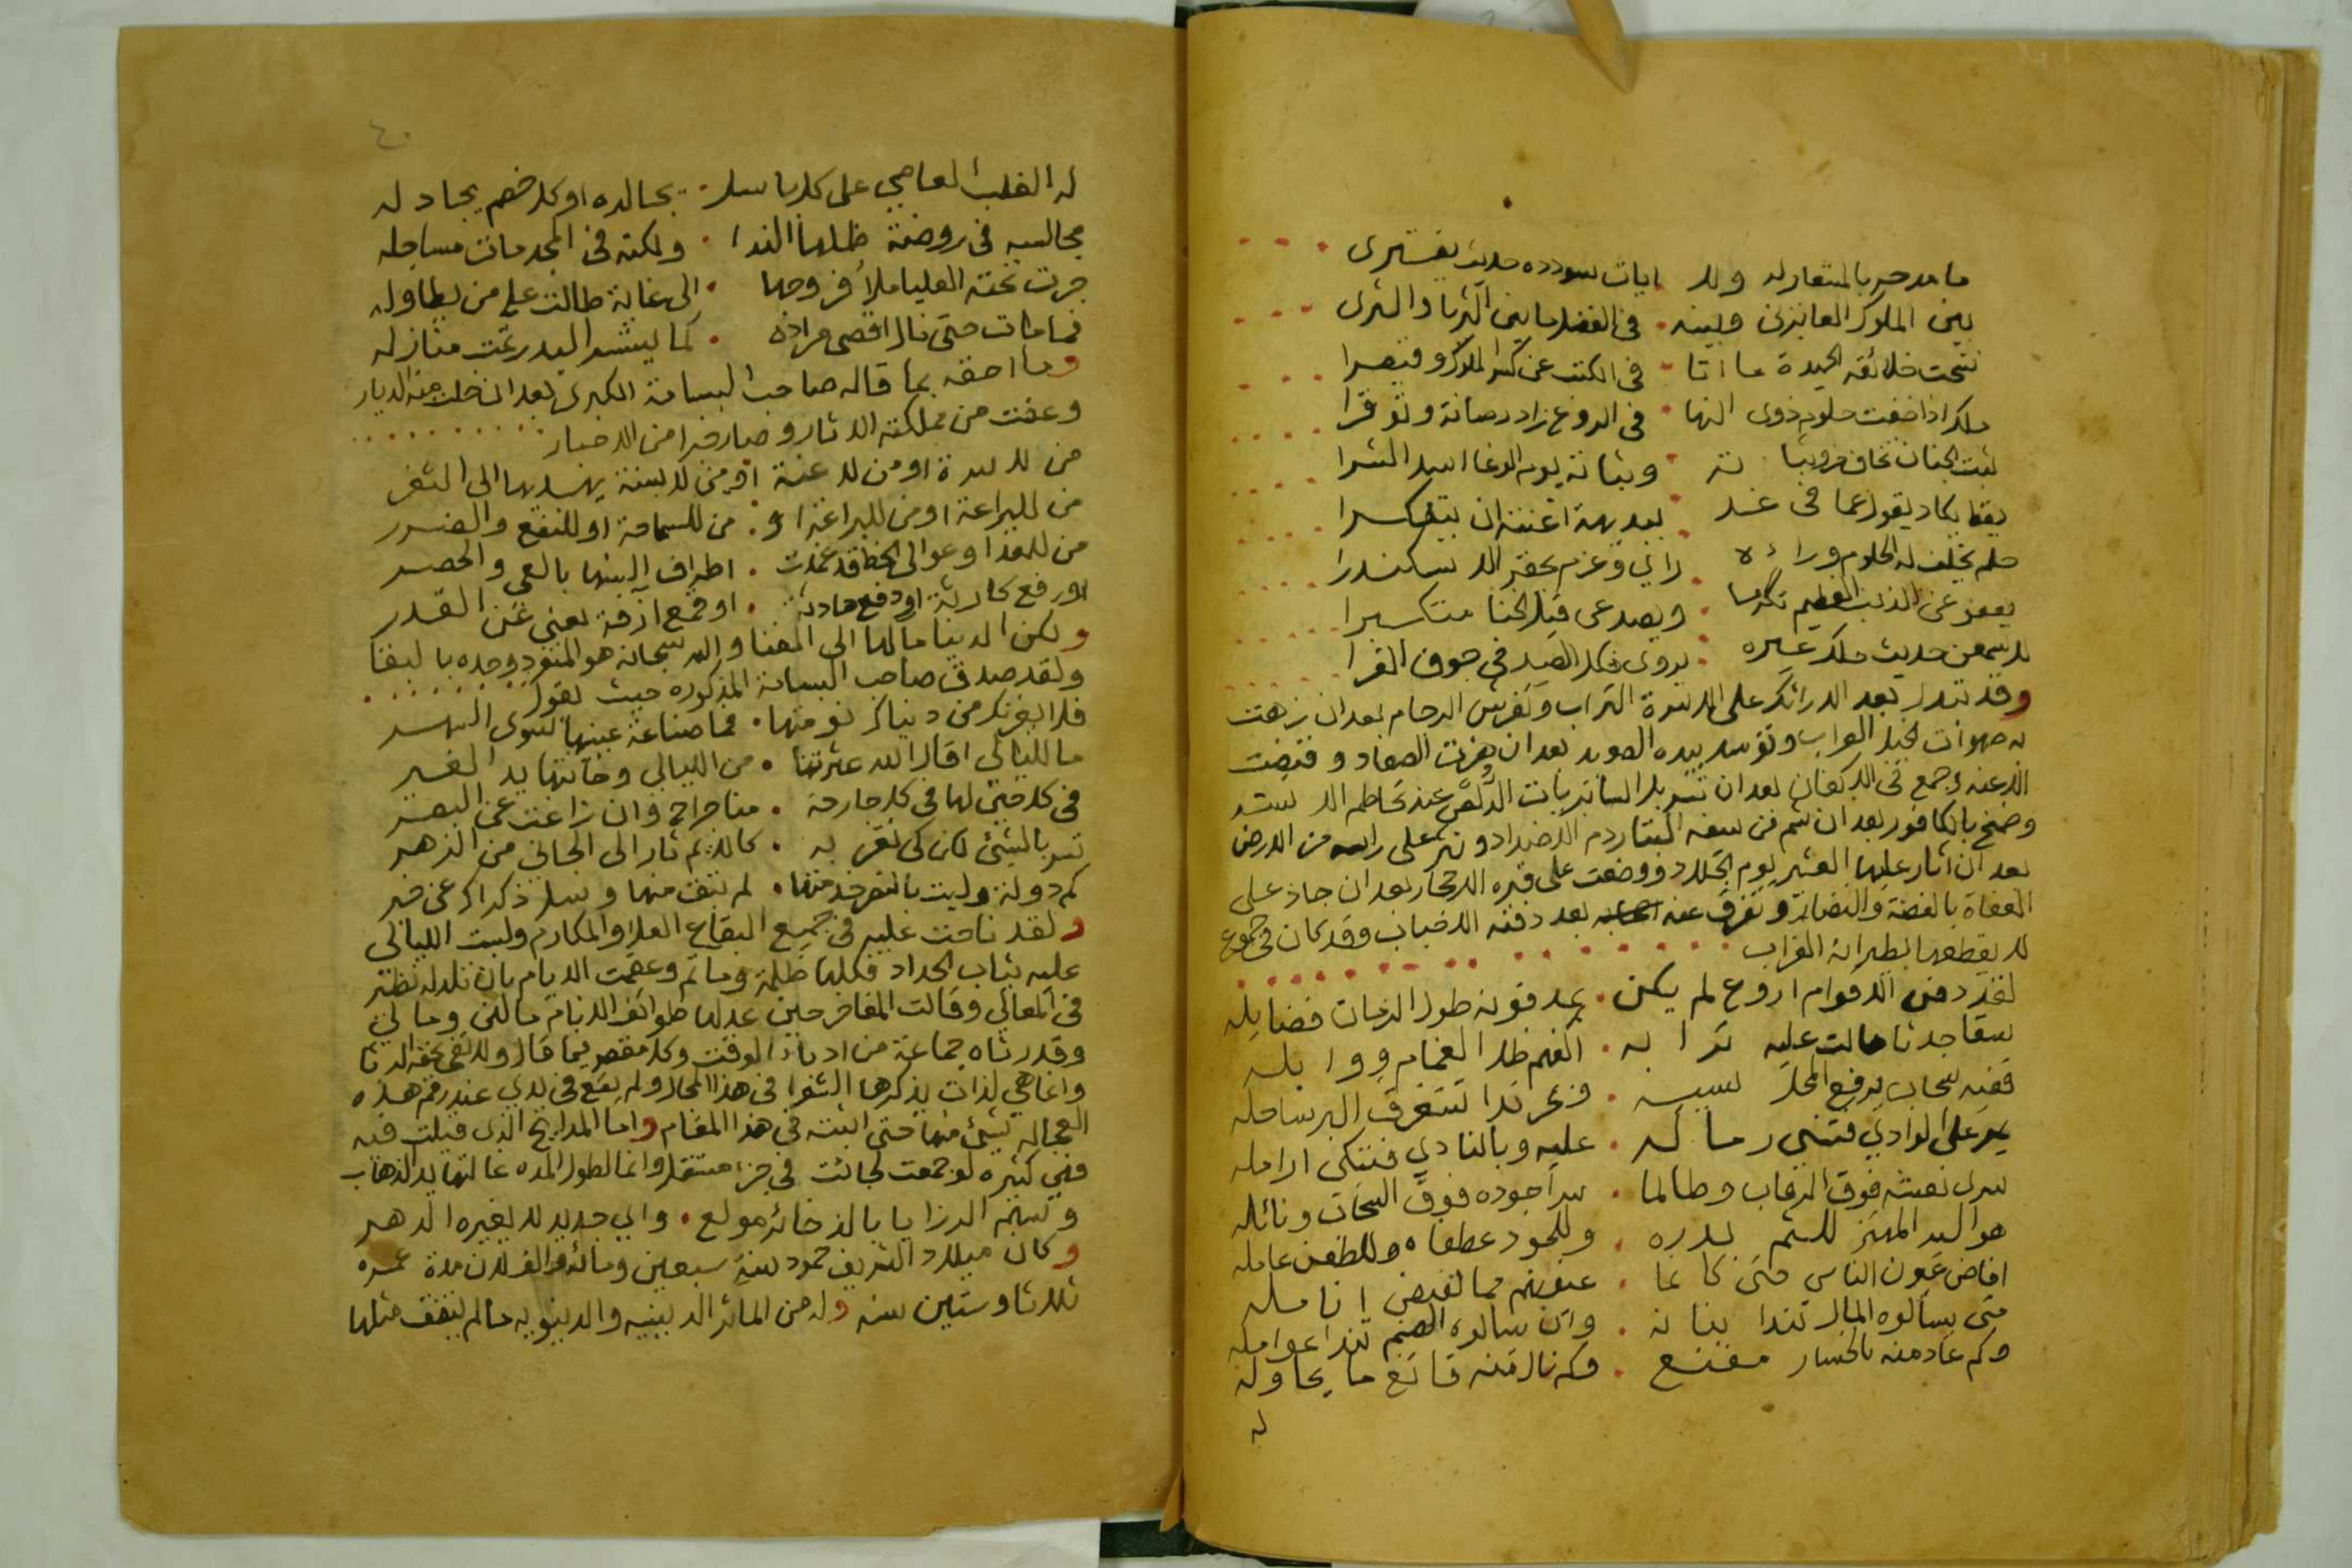 ما مدحه بالمتعار له ولا ايات سودده حديث يفترى
بين الملوك الغابرين وبينه في الفضل ما بين الثريا والثرى
نسخت خلائقه الحميدة ما اتا في الكتب عن كسرا الملوك وقيصرا
ملك اذا خفت حلوم ذوى النها في الروع زاد رصانة وتوقرا
ثبت الجنان تخاف من وثباته وثباته يوم الوغا اسد الشرا
يقظ يكاد يقول عما في غد ببديهة اغنته ان يتفكرا
حلم تخف له الحلوم وراءه راي وعزم يحقر الاسكندرا
يعفو عن الذنب العظيم تكرما ويصد عن قيل الخنا متكبرا
لا تسمعن حديث ملك غيره يروى فكل الصيد في جوف الفرا
وقد تبدل بعد الارائك على الاسرة التراب وتفرش الرخام بعد ان زهت
به صهوات الخيل العراب وتوسد بيده بعد ان هزت الصعاد وقنصت
الاسد عنه وجمع في الاكفان بعد ان تسربل السابريات الدلاص عند تحاطم الاسنة
وضمخ بالكافور بعد ان شم من سيفه البتار دم الاضداد ونثر على راسه من الارض
بعد ان اثار عليها العشير يوم الجلاد ووضعت على قبره الاحجار بعد ان جاد على
العفاة بالفضة والنضار وتفرق عنه بعد دفنه الاحباب وقد كان في جموع
لا يقطعها بطيرانه الغراب
لقد دفن الاقوام اروع لم يكن بمدفونة طول الزمان فضايله
سقا جدثا هالت عليه ترابه اكفهم طل الغمام ووابله
ففيه سحاب يرفع المحل سيبه وبحر ندا تستغرق البر ساحله
يمر على الوادي فتثني رماله عليه وبالنادي فتبكي ارامله
سرى نعشه فوق الرقاب وطالما سرا جوده فوق السحاب ونائله
هو السيد المهتز للتم بدره وللجود عطفاه وللطعن عامله
افاض عيون الناس حتى كانما عيونهم مما تفيض انامله
متى يسالوه المال تندا بنانه وان سالوه الضيم تندا عوامله
وكم عاد منه بالخسار مقنع وكم نال منه قانع ما يحاوله
له
٤٠
له الغلب العاصي على كل باسل يجالده او كل خصم يجادله
مجالسيه في روضة ظلها الندا ولكنه في المجد مات مساجله
جرت تحته العليا ملأ فروجها الى غاية طالت على من يطاوله
فما مات حتى نال اقصى مراده كما يستسر البدر تمت منازله
وما احقه بما قاله صاحب البسامة الكبرى بعد ان خلت منه الديار
وعفت من مملكته الاثار وصار خبرا من الاخبار
من للاسرة او من للاعنة او من للاسنة يهديها الى الثغر
من للبراعة او من لليراعة او من للسماحة او للنفع والضرر
من للعدا وعوالى الخط قد عقدت اطراف السنها بالعي والحصر
او رفع كارثة او دفع حادثة او قمع ازفة تعيي عن القدر
ولكن الدنيا مالها الى الفنا والله سبحانه هو المنفرد وحده بالبقا
ولقد صدق صاحب البسامة المذكوره حيث يقول
فلا يغرنك من دنياك نومتها فما صناعة عينيها سوى السهر
ما لليالي اقال الله عثرتنا من الليالي وخانتها يد الغير
في كل حين لها في كل جارحة منا جراح وان زاغت عن البصر
تسر بالشيء لكن كي تغر به كالايم ثار الى الجاني من الزهر
كم دولة وليت بالنصر خدمتها لم تبق منها وسل ذكراك عن خبر
ولقد ناحت عليه في جميع البقاع العلا والمكارم ولبست الليالي
عليه ثياب الحداد فكلها ظلمة وماتم وعقمت الايام بان تلد له نظير
في المعالي وقالت المفاخر حين عدلها طوائف الانام مالي ومالي
وقد رثاه جماعة من ادباء الوقت وكل مقصر فيما قال ولا يفي بحقه الرثا
وانما هي لذات يذكرها الشعرا في هذا المحال ولم يقع في يدي عند رقم هذه
العجالة شيئ منها حتى اثبته في هذا المقام واما المدايح الذي قيلت فيه
فهي كثيره لو جمعت لجائت في جزء مستقل وانما لطول المده غالتها يد الذهاب
وسهم الرزايا بالذخائر مولع واي جديد لا يغيره الدهر
وكان ميلاد الشريف حمود سنة سبعين ومائة والف لان مدة عمره
ثلاثا وستين سنه وله من المآثر الدينيه والدنيويه ما لم يتفق مثلها